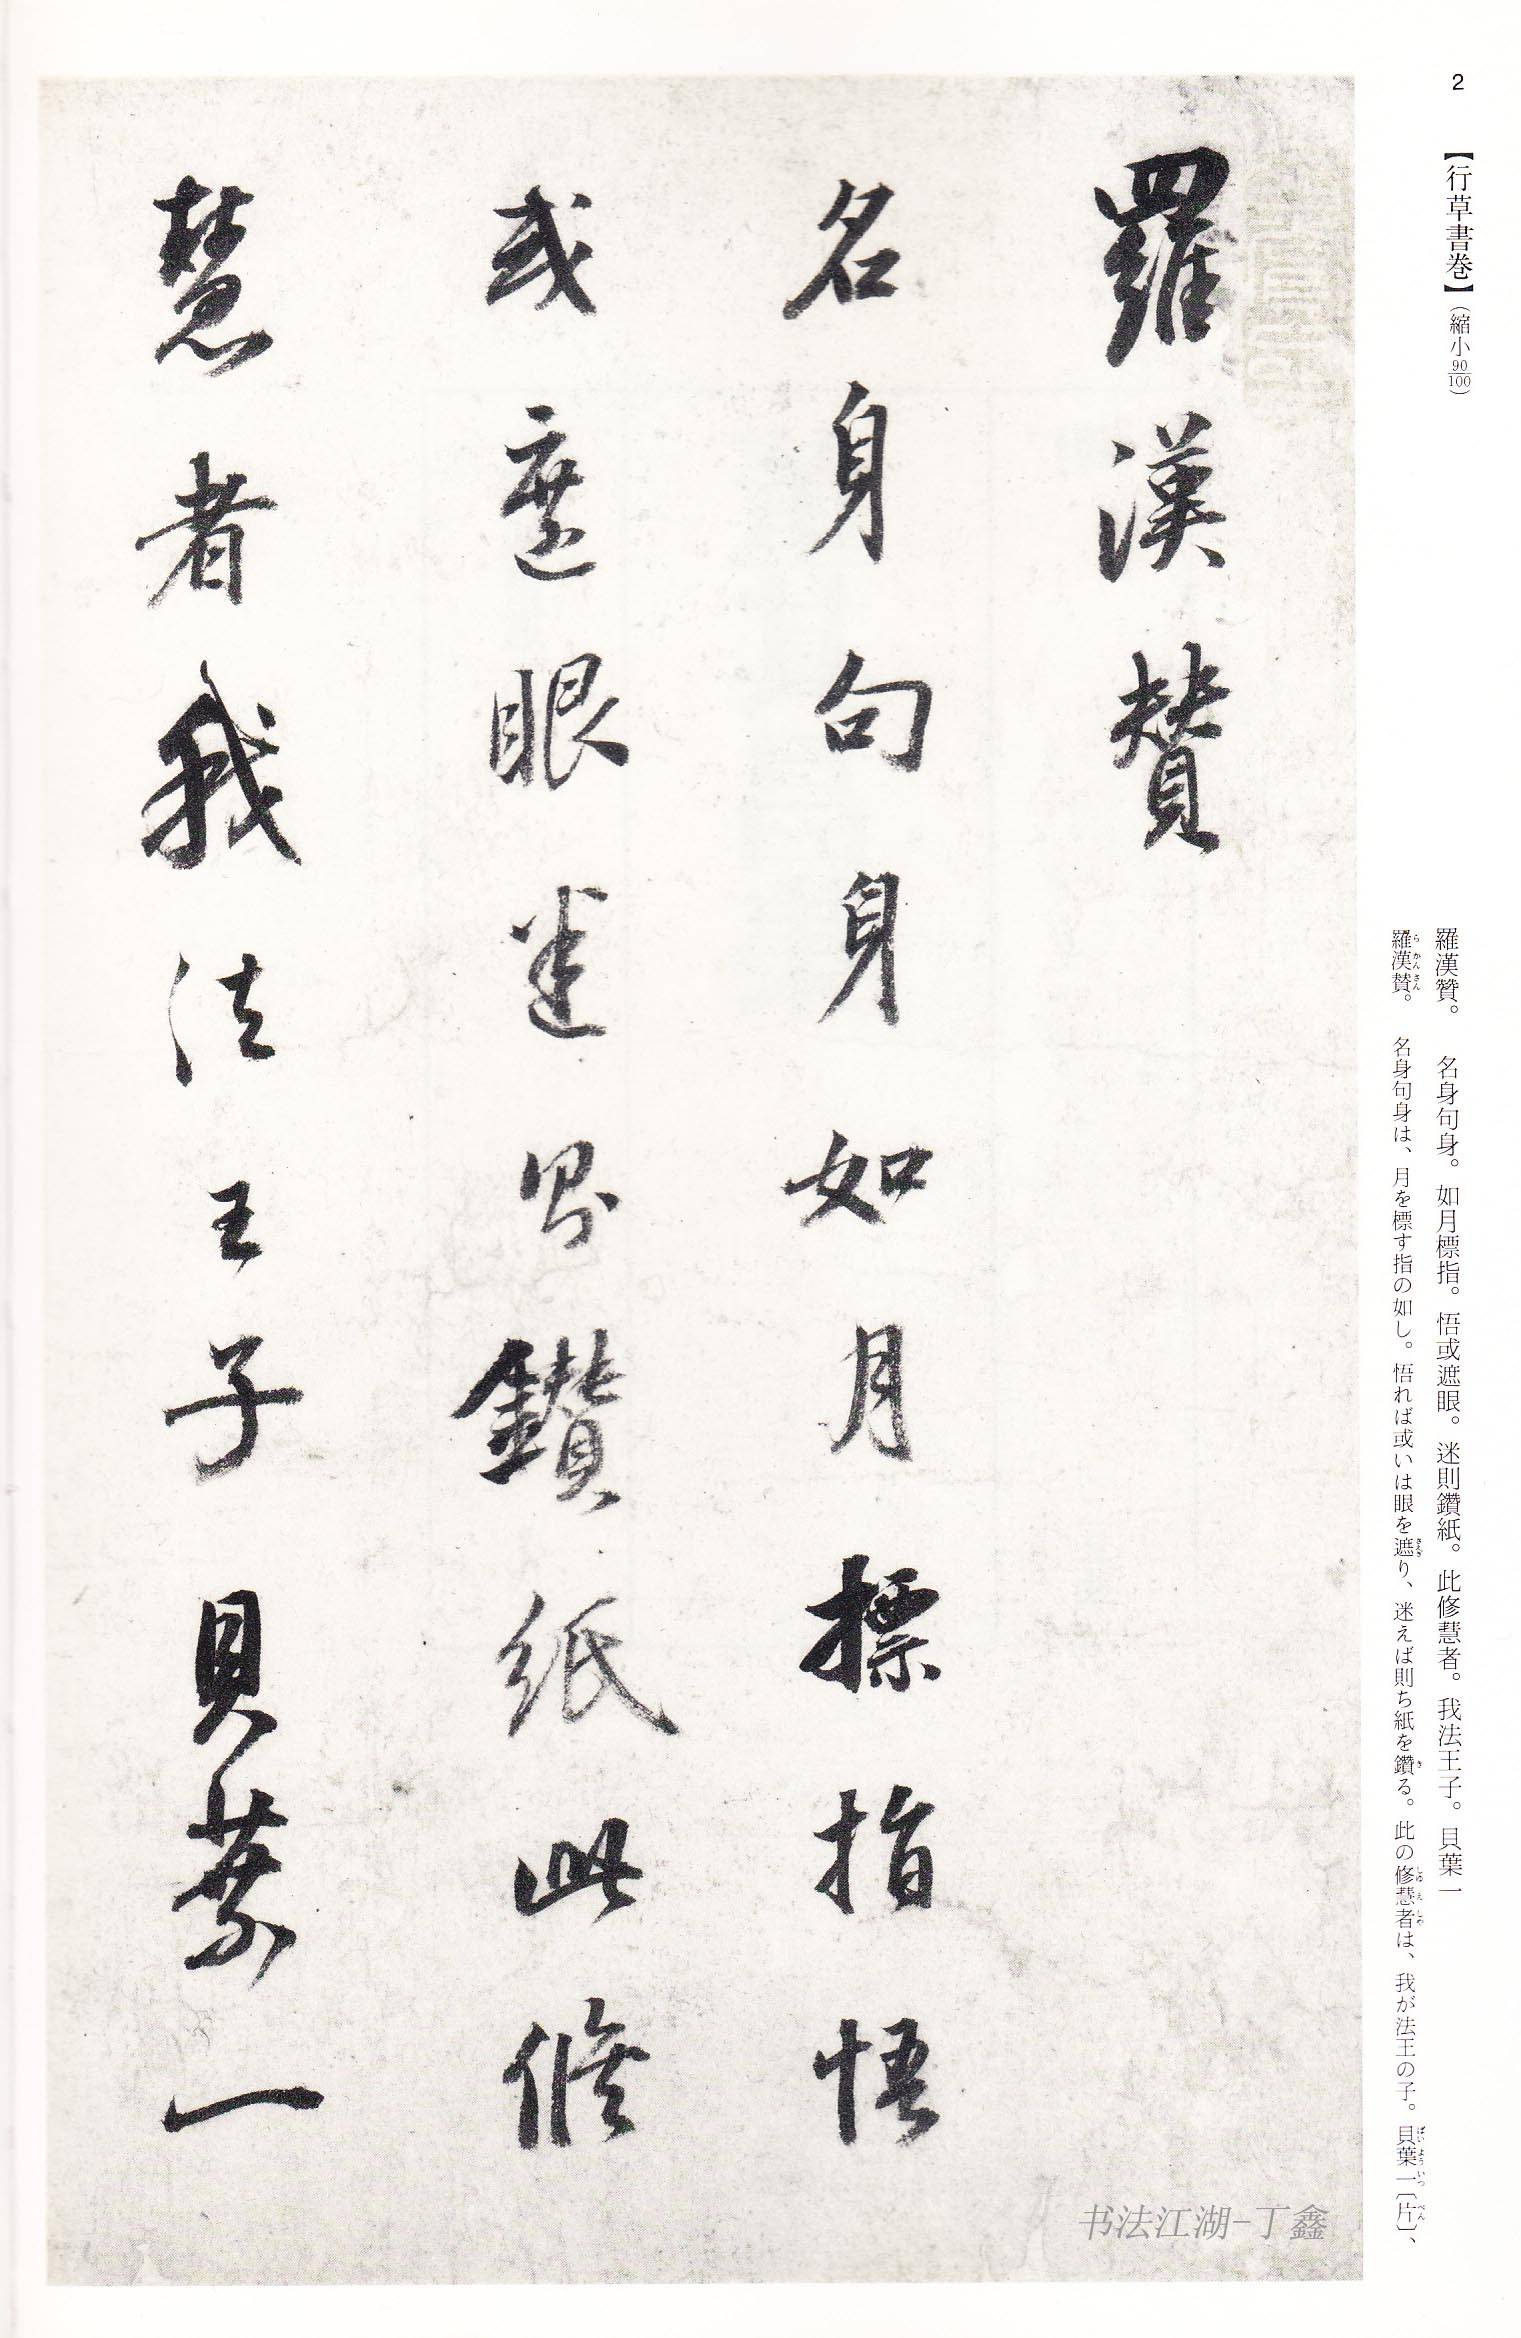 2
【行草書巻】(縮小90/100)
羅漢贊。 名身句身。如月標指。悟或遮眼。迷則鑽紙。此修慧者。我法王子。貝葉一
羅漢賛。 名身句身は、月を標す指の如し。悟れば或いは眼を遮り、迷えば則ち紙を鑽る。此の修慧者は、我が法王の子。貝葉一〔片〕、
羅漢賛
名身句身如月標指悟
或遮眼迷則鑚紙此修
慧者我法王子貝葉一
书法江湖-丁鑫